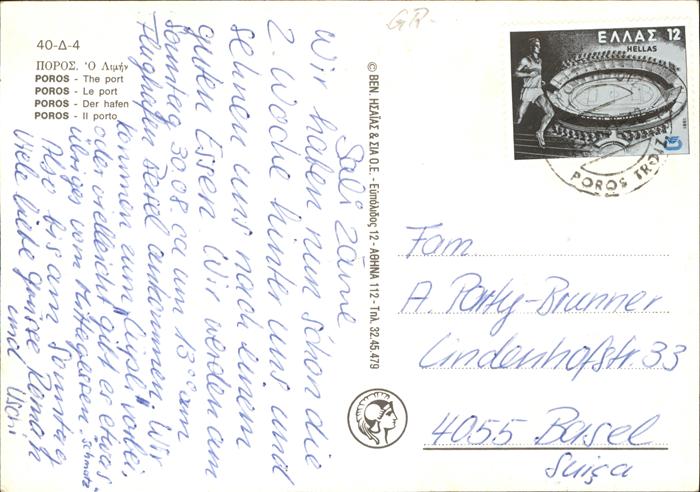 40-Δ-4
ΠΟΡΟΣ. Ὁ Λιμήν
POROS - The port
POROS - Le port
POROS - Der hafen
POROS - Il porto
Sali zäme
Wir haben nun schon die
2. Woche hinter uns und
sehnen uns nach einem
guten Essen. Wir werden am
Sonntag 30.08. ca um 13⁰⁰ am
Flughafen Basel ankommen. Wir
kommen zum "Cüpli" vorbei,
oder vielleicht gibt es etwas
übriges vom Mittagessen. Schmatz
Also bis am Sonntag
Viele liebe grüsse Roman
und Uschi
© ΒΕΝ. ΗΣΑΪΑΣ & ΣΙΑ Ο.Ε. - Ευπόλιδος 12 - ΑΘΗΝΑ 112 - Τηλ. 32.45.479
GR-
ΕΛΛΑΣ 12
HELLAS
1981
POROS
Fam
A. Party-Brunner
Lindenhofstr. 33
4055 Basel
Suiça